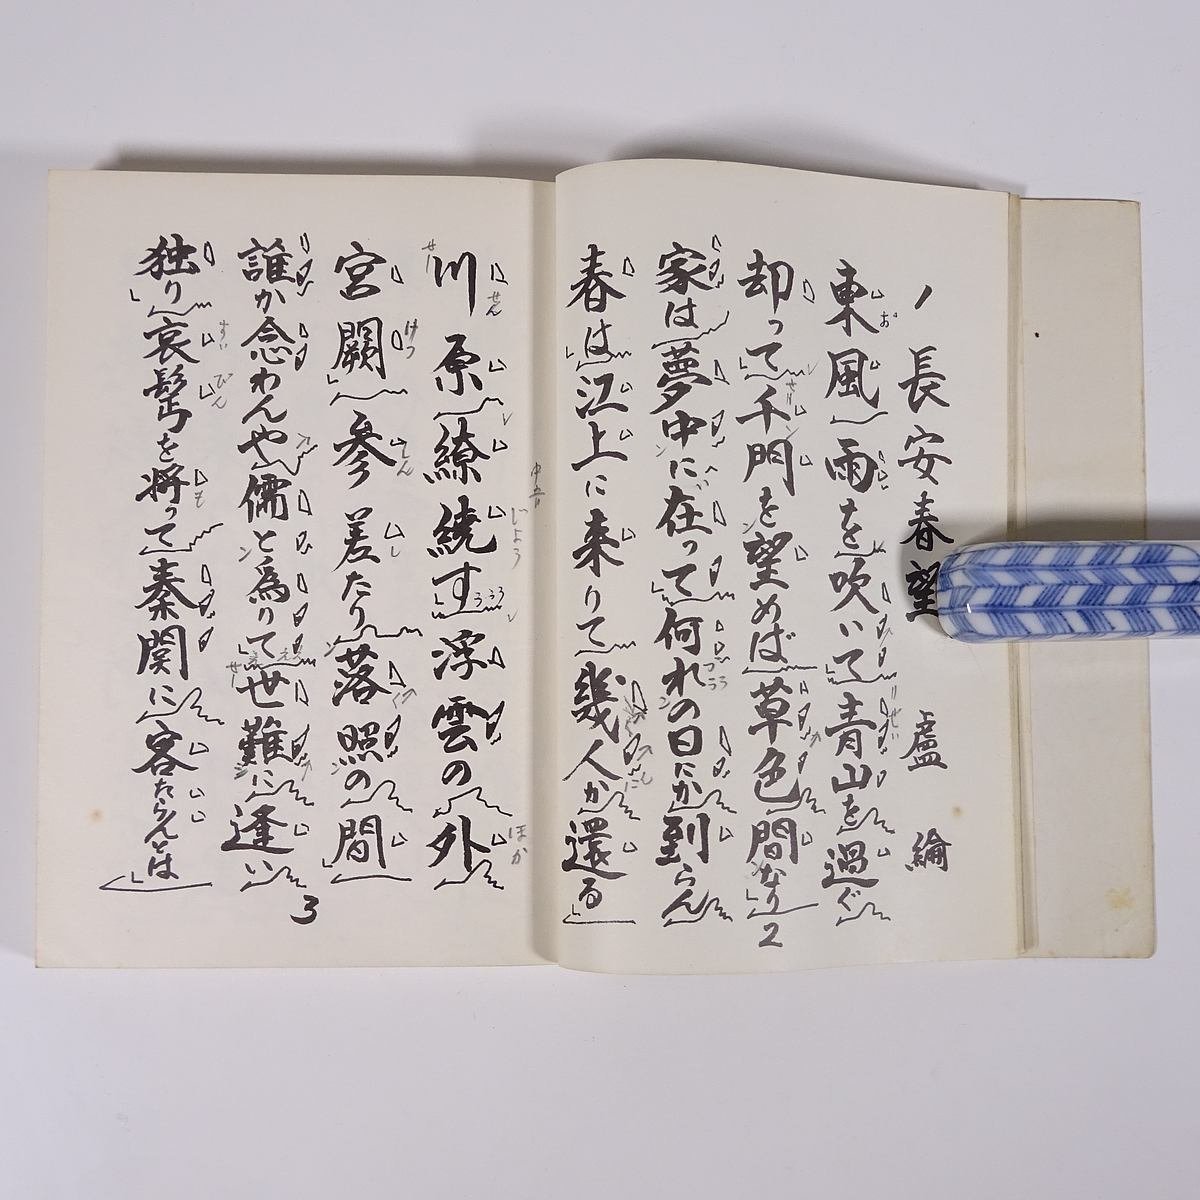 長安春望 盧綸
東風雨を吹いて青山を過ぐ
却って千門を望めば草色間なり
2
家は夢中に在って何れの日にか到らん
春は江上に来りて幾人か還る
川原繚繞す浮雲の外
せん
じょう
ほか
宮闕参差たり落照の間
けつ
しん
し
誰か念わんや儒と為りて世難に逢い
3
独り哀鬂を将って秦関に客たらんとは
すい
びん
も